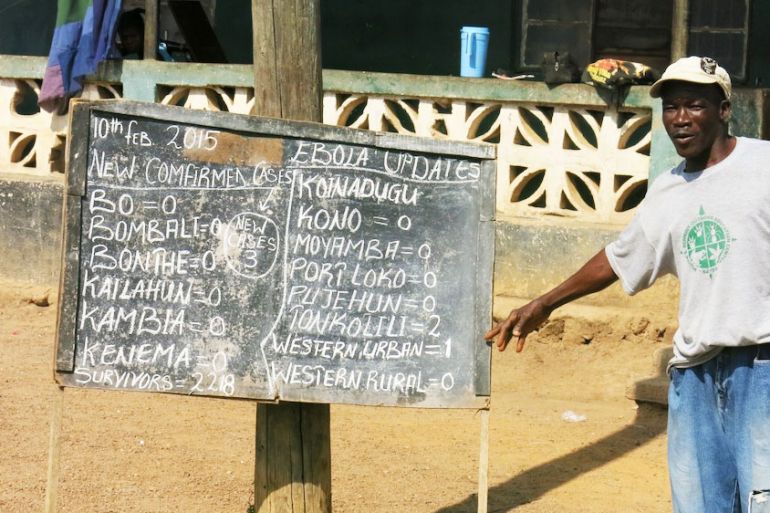 10th FEB 2015
NEW COMFIRMED CASES
BO = 0
BOMBALI = 0
BONTHE = 0
KAILAHUN = 0
KAMBIA = 0
KENEMA = 0
SURVIVORS = 2218
NEW
CASES
3
EBOLA UPDATES
KOINADUGU
KONO = 0
MOYAMBA = 0
PORT LOKO = 0
PUJEHUN = 0
TONKOLILI = 2
WESTERN URBAN = 1
WESTERN RURAL = 0